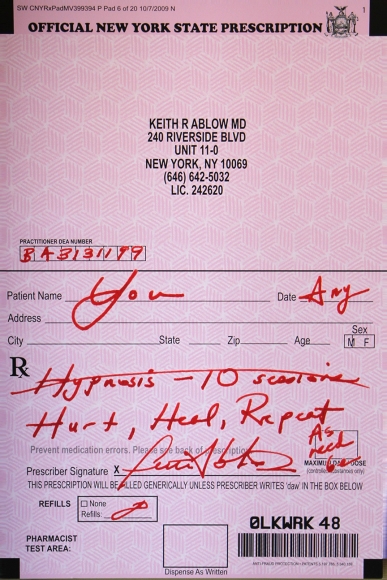 SW CNYRxPadMV399394 P Pad 6 of 20 10/7/2009 N
1
OFFICIAL NEW YORK STATE PRESCRIPTION
KEITH R ABLOW MD
240 RIVERSIDE BLVD
UNIT 11-0
NEW YORK, NY 10069
(646) 642-5032
LIC. 242620
PRACTITIONER DEA NUMBER
BA3131199
Patient Name You Date Any
Address
Sex
City State Zip Age M F
Rx Hypnosis - 10 sessions
Hurt, Heal, Repeat
As need
Prevent medication errors. Please see back of prescription
MAXIMUM DAILY DOSE
Prescriber Signature X
THIS PRESCRIPTION WILL BE FILLED GENERICALLY UNLESS PRESCRIBER WRITES 'daw' IN THE BOX BELOW
REFILLS None
Refills:
0LKWRK 48
PHARMACIST
TEST AREA:
Dispense As Written